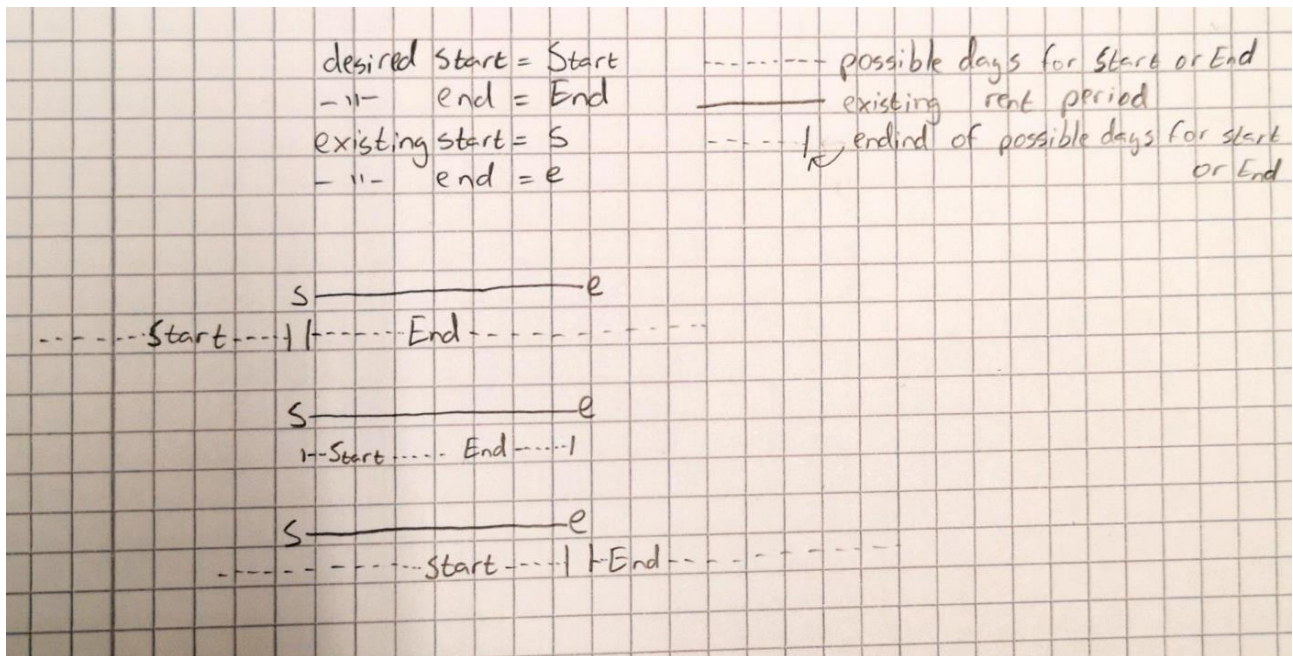 desired start = Start
- " - end = End
existing start = s
- " - end = e
possible days for Start or End
existing rent period
endind of possible days for start
or End
s e
Start End
s e
Start End
s e
Start End